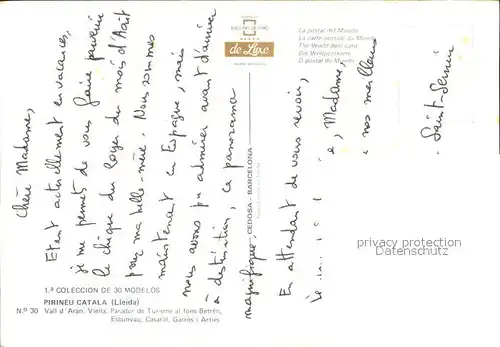 Chère Madame,
Etant actuellement en vacances,
je me permets de vous faire parvenir
le chèque du loyer du mois d'Août
pour ma belle-mère. Nous sommes
maintenant en Espagne, mais
nous avons pu admirer avant d'arriver
à destination, ce panorama
magnifique.
En attendant de vous revoir,
, Madame,
nos meilleurs
Saint-
ESCUDO DE ORO
de Luxe
La postal del Mundo
La carte postale du Monde
The World best card
Die Weltpostkarte
O postal do Mundo
CEDOSA - BARCELONA
privacy protection
watermark
1.ª COLECCION DE 30 MODELOS
PIRINEU CATALA (Lleida)
N.º 30 Vall d'Aran. Viella, Parador de Turisme al fons Betrén,
Escunyau, Casarill, Garrós i Arties